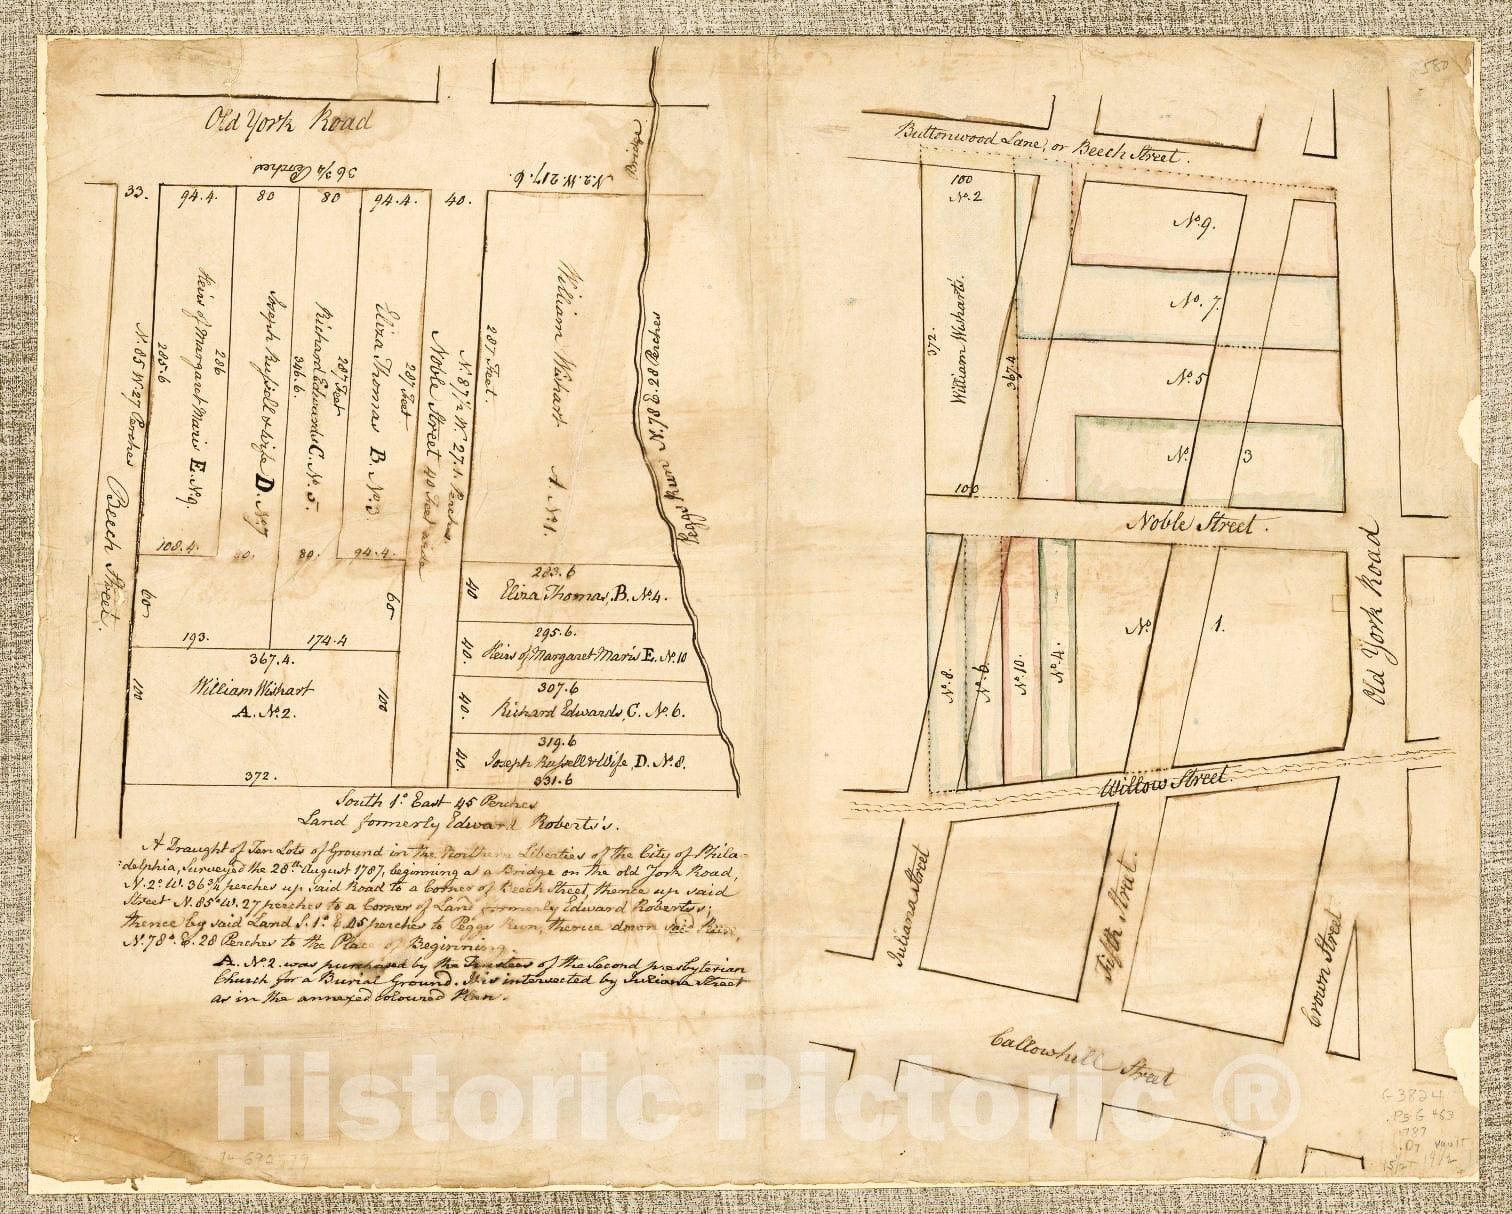 Old York Road
36 3/4 Perches
N. 2. W. 217. 6.
Bridge
33.
94.4.
80
80
94.4.
40.
N. 85 W. 27 Perches
Beech Street.
285.6
Heirs of Margaret Maris E. No 9.
286
Joseph Russell & Wife D. No 7
Richard Edwards C. No. 5.
346.6.
287 Feet
Eliza Thomas B. No 3
287 Feet
Noble Street 40 Feet wide
N. 87 1/2 W. 27.1. Perches.
287 Feet.
William Wishart A No 1.
Peggs Run N. 78 E. 28 Perches
108.4.
80.
80.
94.4.
60
60
193.
174.4
367.4.
William Wishart
A. No. 2.
100
100
372.
283.6
40
Eliza Thomas, B. No 4.
295.6.
40.
Heirs of Margaret Maris E. No. 10
307.6
40.
Richard Edwards, C. No. 6.
319.6
40.
Joseph Russell & Wife, D. No. 8.
331.6
South 1° East 45 Perches
Land formerly Edward Roberts's.
A Draught of Ten Lots of Ground in the Northern Liberties of the City of Phila-
delphia, Surveyed the 28th August 1787, beginning at a Bridge on the old York Road,
N. 2° W. 36 3/4 perches up said Road to a Corner of Beech Street, thence up said
Street N. 85° W. 27 perches to a Corner of Land formerly Edward Roberts's;
thence by said Land S. 1° E. 45 perches to Peggs Run, thence down said Run,
N. 78° E. 28 Perches to the Place of Beginning.
A. No 2. was purchased by the Trustees of the Second presbyterian
Church for a Burial Ground. It is intersected by Juliana Street
as in the annexed coloured Plan.
580
Buttonwood Lane, or Beech Street.
100
No. 2
William Wishart's.
372.
367.4
100
No 9.
No. 7.
No 5
No. 3
Noble Street.
No. 8.
No. 6.
No. 10.
No. 4.
No 1.
Old York Road
Willow Street.
Juliana Street
Fifth Street.
Crown Street
Callowhill Street
G 3824
.P5 G 463
1787
.D7
Vault
74-692779
Historic Pictoric ®